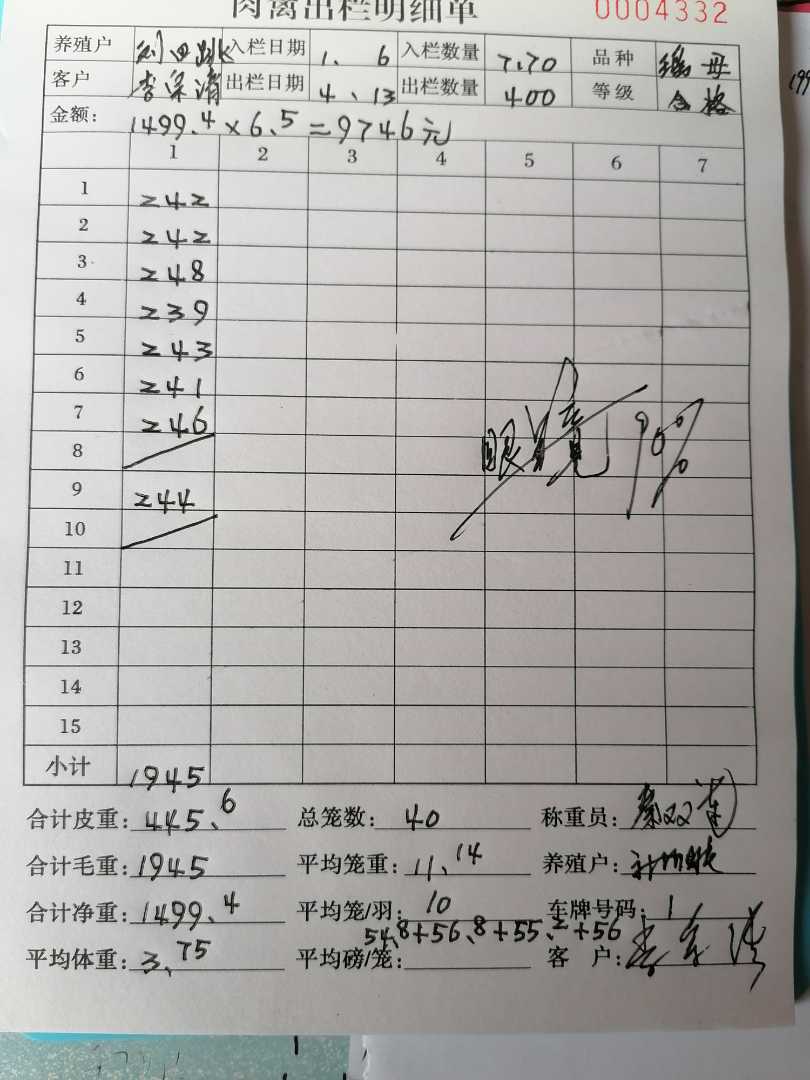 肉禽出栏明细单 0004332
养殖户 入栏日期 1. 6 入栏数量 7.70 品种
客户 出栏日期 4、13 出栏数量 400 等级 合格
金额: 1499.4×6.5=9746元
1 2 3 4 5 6 7
1 242
2 242
3 248
4 239
5 243
6 241
7 246
8
9 244
10
11
12
13
14
15
小计 1945
合计皮重: 445.6 总笼数: 40 称重员:
合计毛重: 1945 平均笼重: 11.14 养殖户:
合计净重: 1499.4 平均笼/羽: 10 车牌号码: 1
54.8+56.8+55.2+56
平均体重: 3.75 平均磅/笼: 客 户: